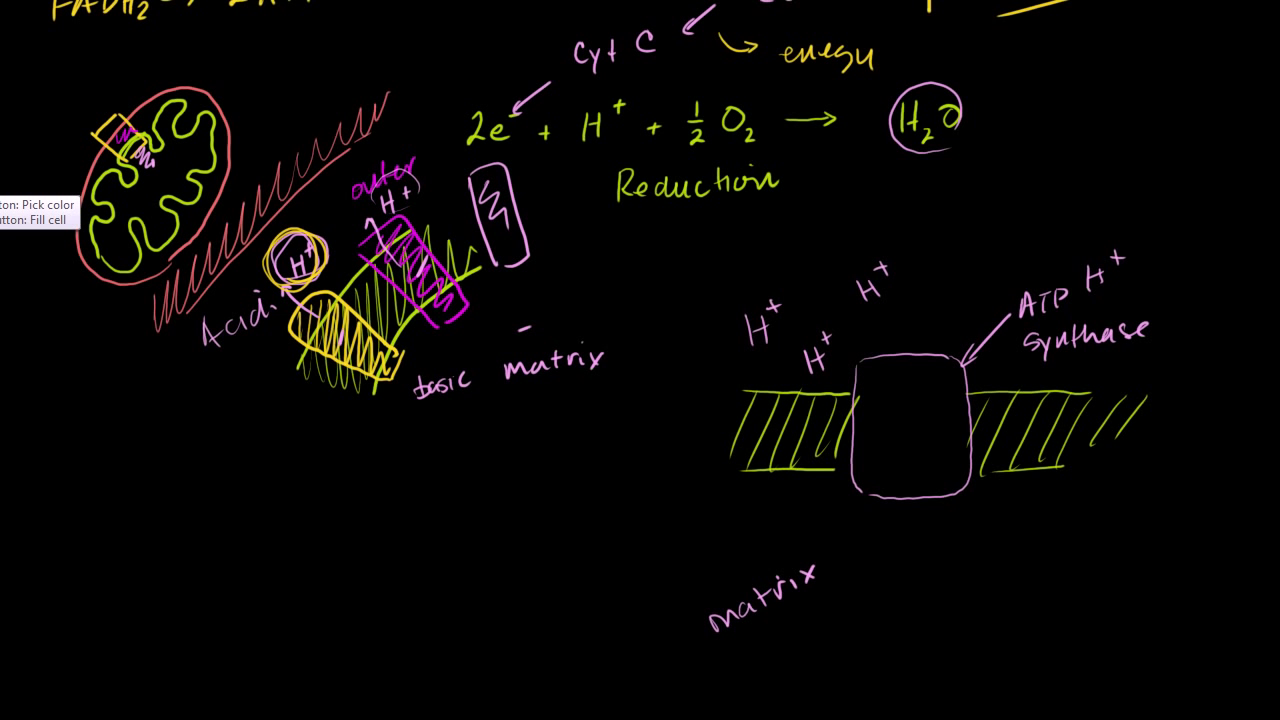 FADH₂
Cyt C
energy
2e⁻ + H⁺ + ½ O₂ → H₂O
Reduction
ton: Pick color
utton: Fill cell
outer
H⁺
H⁺
Acid.
basic matrix
H⁺
H⁺
H⁺
H⁺
ATP
Synthase
matrix